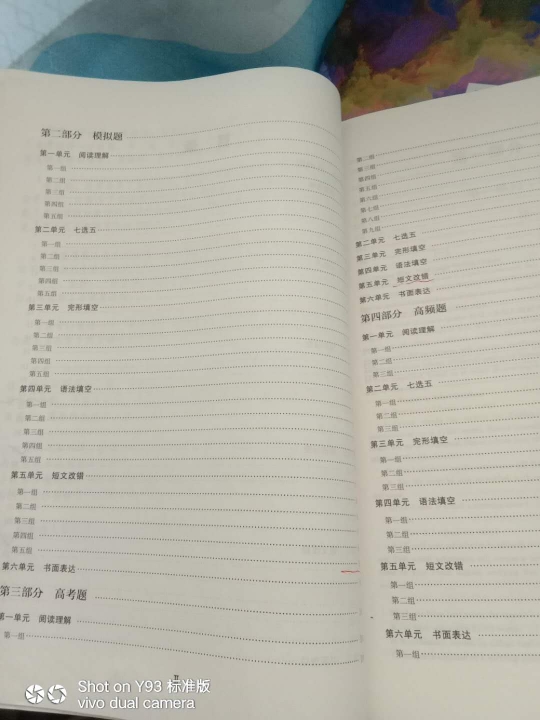 第二部分 模拟题
第一单元 阅读理解
第一组
第二组
第三组
第四组
第五组
第二单元 七选五
第一组
第二组
第三组
第四组
第五组
第三单元 完形填空
第一组
第二组
第三组
第四组
第五组
第四单元 语法填空
第一组
第二组
第三组
第四组
第五组
第五单元 短文改错
第一组
第二组
第三组
第四组
第五组
第六单元 书面表达
第三部分 高考题
第一单元 阅读理解
第一组
第二组
第三组
第四组
第五组
第六组
第七组
第八组
第九组
第二单元 七选五
第三单元 完形填空
第四单元 语法填空
第五单元 短文改错
第六单元 书面表达
第四部分 高频题
第一单元 阅读理解
第一组
第二组
第三组
第二单元 七选五
第一组
第二组
第三组
第三单元 完形填空
第一组
第二组
第三组
第四单元 语法填空
第一组
第二组
第三组
第五单元 短文改错
第一组
第二组
第三组
第六单元 书面表达
第一组
Shot on Y93 标准版
vivo dual camera